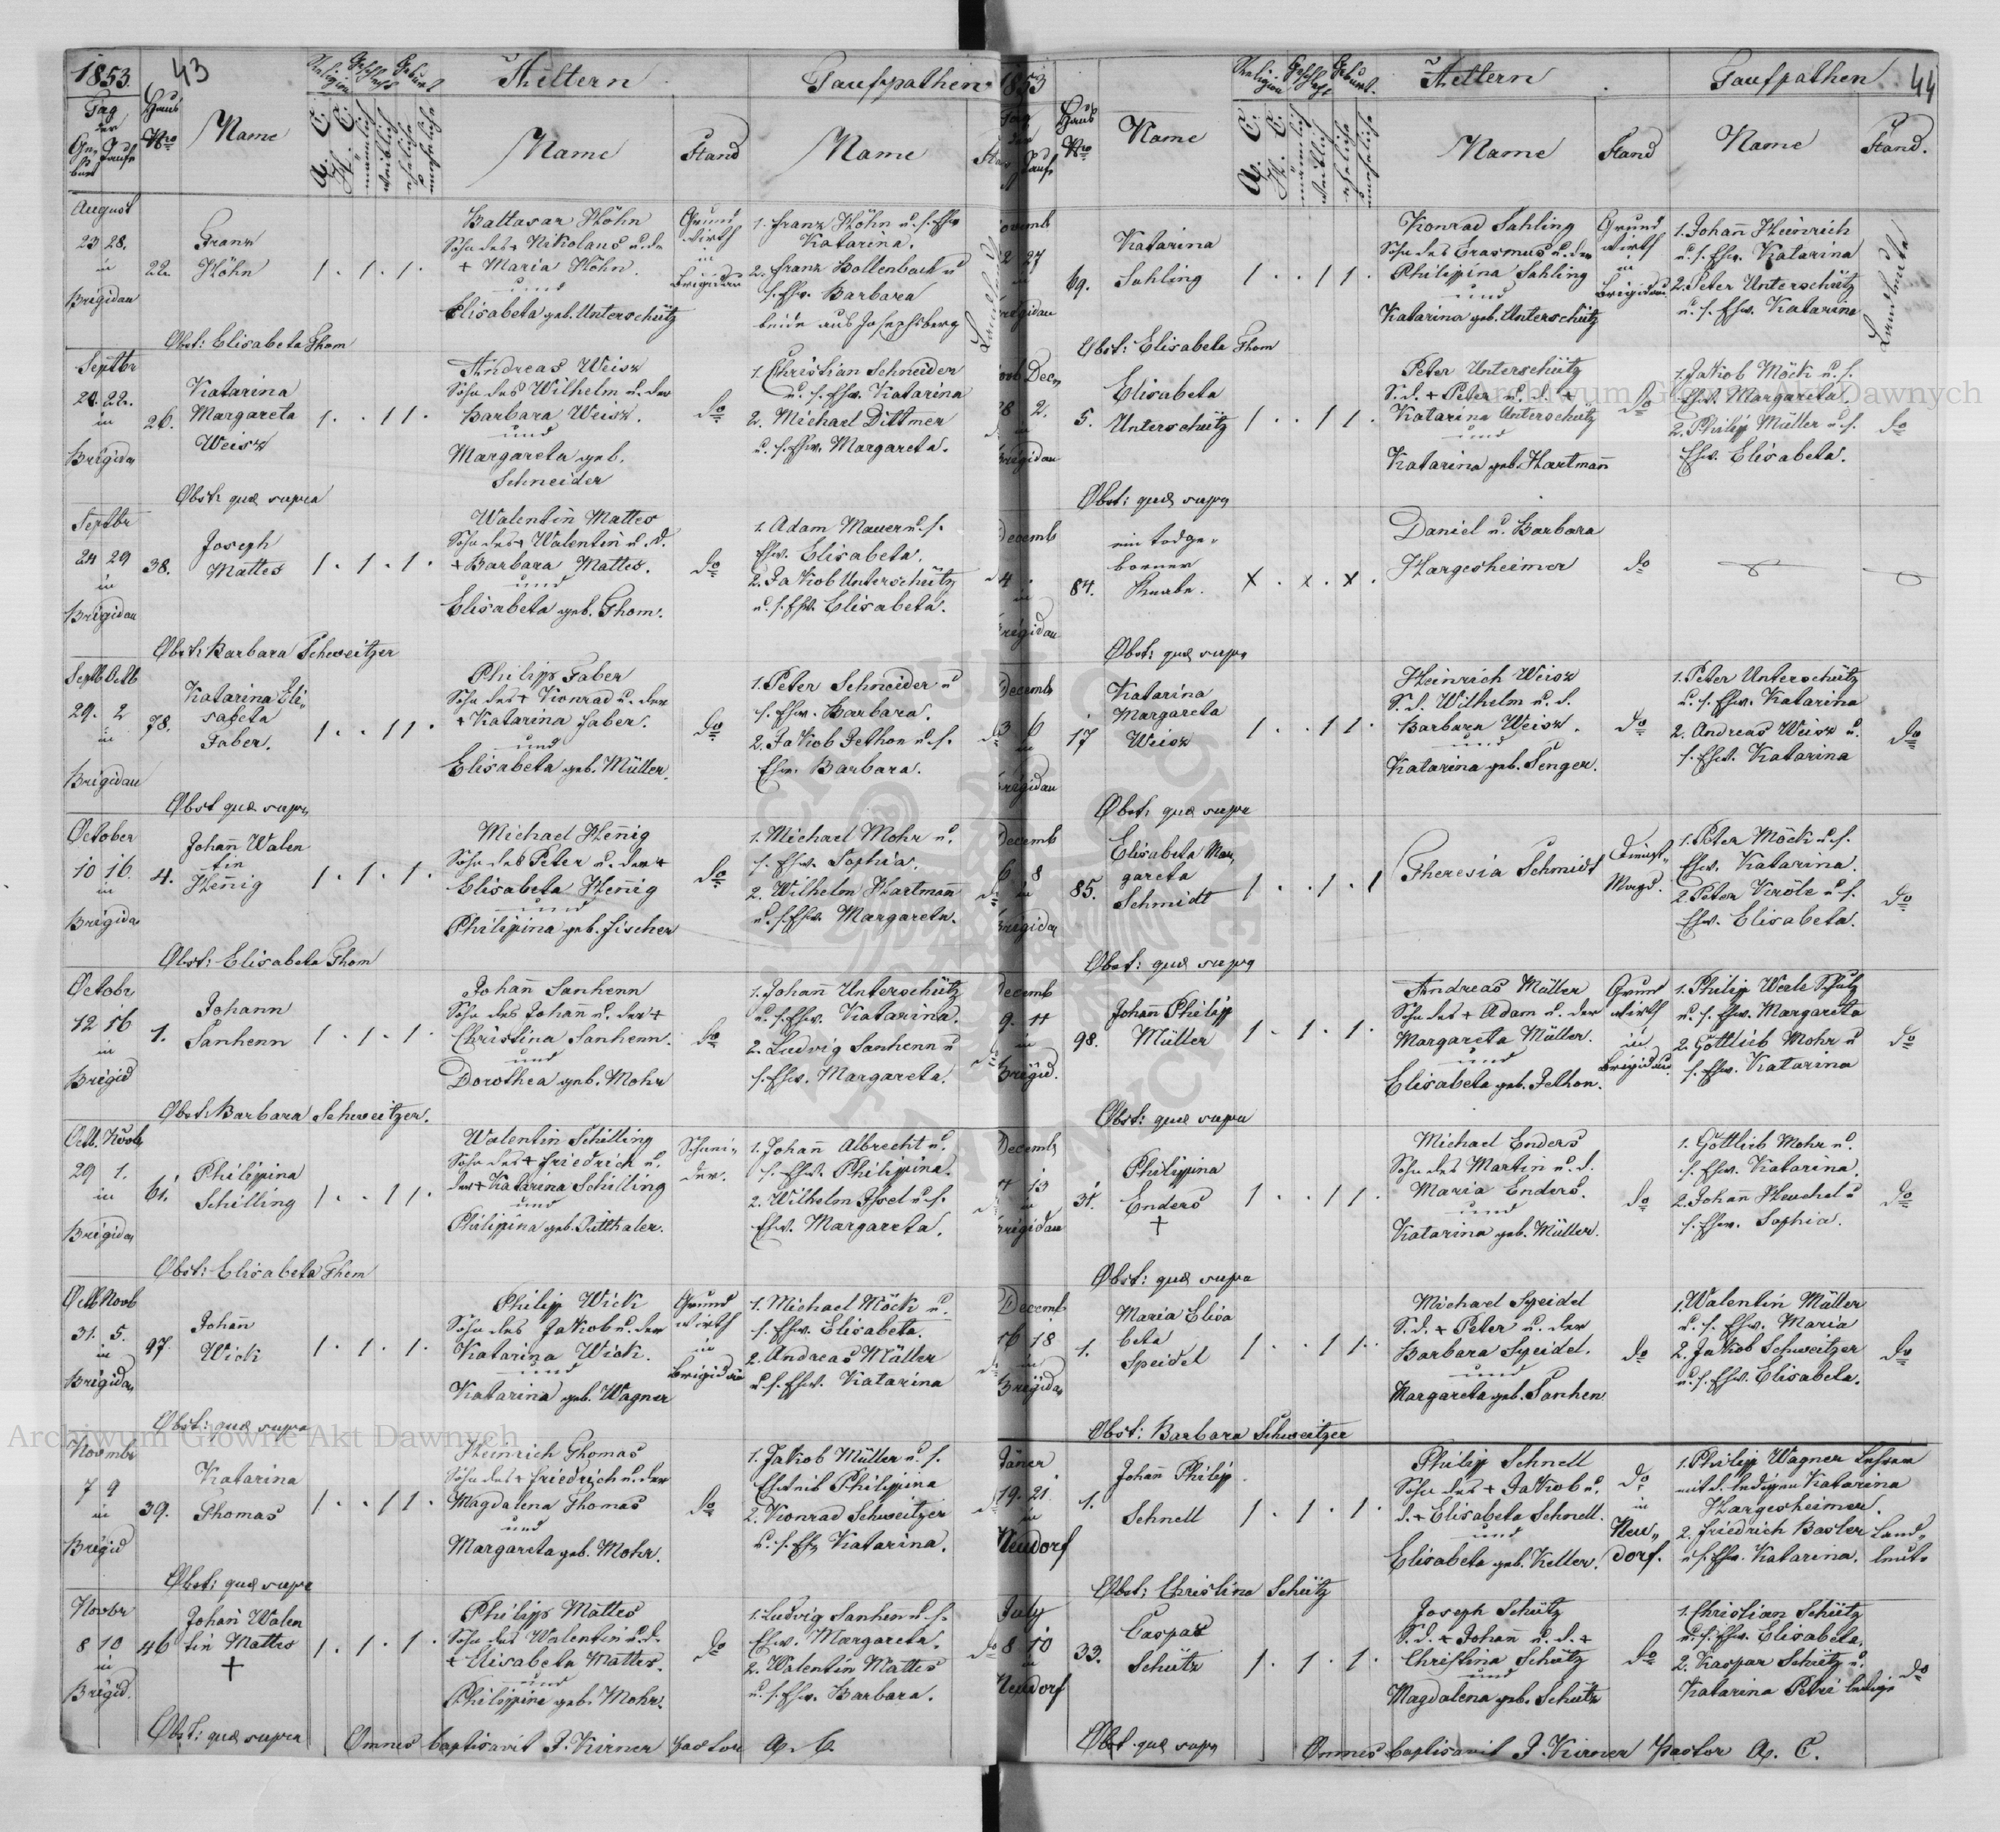 1853. 43
Aeltern
Taufpathen
Tag der Geburt Taufe
Haus Nro
Name
Religion
Geschlecht
Geburt
A. C.
H. C.
männlich
weiblich
eheliche
uneheliche
Name
Stand
Name
August
23 28.
in
Brigidau
22.
Franz
Höhn
1 . 1 . 1 .
Baltasar Höhn
Sohn des + Nikolaus u. der
+ Maria Höhn.
und
Elisabeta geb. Unterschütz
Grund
wirth
in
Brigidau
1. Franz Höhn u. s. Ehw
Katarina.
2. Franz Bollenbach u
s. Ehw. Barbara
beide aus Josephsberg
Landleute
Obst: Elisabeta Thom
Septbr
22.
in
Brigidau
26.
Katarina
Margareta
Weisz
1 . . 1 1 .
Andreas Weisz
Sohn des Wilhelm u. der
Barbara Weisz.
und
Margareta geb.
Schneider
do
1. Christian Schneider
u. s. Ehw. Katarina
2. Michael Dittmer
u. s. Ehw. Margareta.
Obst: quae supra
Septbr
24 29
in
Brigidau
38.
Joseph
Mattes
1 . 1 . 1 .
Walentin Mattes
Sohn des + Walentin u. d.
+ Barbara Mattes.
und
Elisabeta geb. Thom.
do
1. Adam Mauer u. s.
Ehw. Elisabeta.
2. Jakob Unterschütz
u. s. Ehw. Elisabeta.
Obst: Barbara Schweitzer
Septb Octb
29. 2
in
Brigidau
78.
Katarina Eli-
sabeta
Faber.
1 . . 1 1 .
Philipp Faber
Sohn des + Konrad u. der
+ Katarina Faber.
und
Elisabeta geb. Müller.
do
1. Peter Schneider u
s. Ehw. Barbara.
2. Jakob Jethon u. s.
Ehw. Barbara.
Obst quae supra
October
10 16.
in
Brigidau
4.
Johañ Walen
tin
Heñig
1 . 1 . 1 .
Michael Heñig
Sohn des Peter u. der +
Elisabeta Heñig
und
Philipina geb. Fischer
do
1. Michael Mohr u.
s. Ehw. Sophia.
2. Wilhelm Hartmañ
u. s. Ehw. Margareta.
Obst: Elisabeta Thom
Octobr
12 16
in
Brigid
1.
Johann
Sanhenn
1 . 1 . 1 .
Johañ Sanhenn
Sohn des Johañ u. der +
Christina Sanhenn.
und
Dorothea geb. Mohr
do
1. Johañ Unterschütz
u. s. Ehw. Katarina.
2. Ludvig Sanhenn u
s. Ehw. Margareta.
Obst: Barbara Schweitzer.
Oct. Novb
29 1.
in
Brigidau
61.
Philippina
Schilling
1 . . 1 1 .
Walentin Schilling
Sohn des + Friedrich u.
der + Katarina Schilling
und
Philippina geb.
Schnei-
der.
1. Johañ Albrecht u.
s. Ehw. Philippina.
2. Wilhelm u. s.
Ehw. Margareta.
Obst: Elisabeta Thom
Octb Novb
31. 5.
in
Brigidau
97.
Johañ
Wick
1 . 1 . 1 .
Philipp Wick
Sohn des Jakob u. der
Katarina Wick.
und
Katarina geb. Wagner
Grund
wirth
in
Brigidau
1. Michael Möck u.
s. Ehw. Elisabeta.
2. Andreas Müller
u. s. Ehw. Katarina
Obst: quae supra
Novmbr
7 9
in
Brigid
39.
Katarina
Thomas
1 . . 1 1 .
Heinrich Thomas
Sohn des + Friedrich u. der
Magdalena Thomas
und
Margareta geb. Mohr.
do
1. Jakob Müller u. s.
Eheweib Philippina
2. Konrad Schweitzer
u. s. Ehw Katarina.
Obst: quae supra
Novbr
8 10
in
Brigid.
46
Johañ Walen
tin Mattes
+
1 . 1 . 1 .
Philipp Mattes
Sohn des Walentin u. d.
+ Elisabeta Mattes.
und
Philippine geb. Mohr.
do
1. Ludvig Sanheñ u. s.
Ehw. Margareta.
2. Walentin Mattes
u. s. Ehw. Barbara.
do
Obst: quae supra
Omnes baptisavit J. Kirner Pastor A. C.
1853
Aeltern
Taufpathen 44
Haus Nro
Name
Religion
Geschlecht
Geburt.
A. C.
H. C.
männlich
weiblich
eheliche
unehliche
Name
Stand
Name
Stand.
Novemb
27
Brigidau
69.
Katarina
Sahling
1 . . 1 1 .
Konrad Sahling
Sohn des Erasmus u. der
Philippina Sahling
und
Katarina geb. Unterschütz
Grund
wirth
in
Brigidau.
1. Johañ Heinrich
u. s. Ehw. Katarina
2. Peter Unterschütz
u. s. Ehw. Katarina
Landleute
Obst: Elisabeta Thom
Novb Decm
28 2.
in
Brigidau
5.
Elisabeta
Unterschütz
1 . . 1 1 .
Peter Unterschütz
S. d. + Peter u. d. +
Katarina Unterschütz
und
Katarina geb. Hartmañ
do
1. Jakob Möck u. s.
Ehw. Margareta.
2. Philipp Müller u. s.
Ehw. Elisabeta.
do
Obst: quae supra
Decemb
4
in
Brigidau
84.
ein todge-
borner
Knabe.
x . x . x .
Daniel u. Barbara
Hargesheimer
do
Obst: quae supra
Decemb
3 6
in
Brigidau
17
Katarina
Margareta
Weisz
1 . . 1 1 .
Heinrich Weisz
S. d. Wilhelm u. d.
Barbara Weisz.
und
Katarina geb. Senger.
do
1. Peter Unterschütz
u. s. Ehw. Katarina
2. Andreas Weisz u.
s. Ehw. Katarina
do
Obst: quae supra
Decemb
6 8
in
Brigidau
85.
Elisabeta Mar
gareta
Schmidt
1 . . 1 . 1
Theresia Schmidt
Dienst-
Magd.
1. Peter Möck u. s.
Ehw. Katarina.
2. Peter Kröle u. s.
Ehw. Elisabeta.
do
Obst: quae supra
Decemb
9. 11
in
Brigid.
98.
Johañ Philipp
Müller
1 . 1 . 1 .
Andreas Müller
Sohn des + Adam u. der
Margareta Müller.
und
Elisabeta geb. Jethon.
Grund
wirth
in
Brigidau.
1. Philipp Werle Schulz
u. s. Ehw. Margareta
2. Gottlieb Mohr u
s. Ehw. Katarina
do
Obst: quae supra
Decemb
11 13
in
Brigidau
31.
Philippina
Enders
+
1 . . 1 1 .
Michael Enders
Sohn des Martin u. d.
Maria Enders.
und
Katarina geb. Müller.
do
1. Gottlieb Mohr u.
s. Ehw. Katarina.
2. Johañ Heuchel u
s. Ehw. Sophia.
do
Obst: quae supra
Decemb
16 18
in
Brigidau
1.
Maria Elisa
beta
Speidel
1 . . 1 1 .
Michael Speidel
S. d. + Peter u. der
Barbara Speidel.
und
Margareta geb. Sanhen
do
1. Walentin Müller
u. s. Ehw. Maria
2. Jakob Schweitzer
u. s. Ehw. Elisabeta.
do
Obst: Barbara Schweitzer
Jäner
19. 21.
in
Neudorf
1.
Johañ Philip
Schnell
1 . 1 . 1 .
Philipp Schnell
Sohn des + Jakob u.
d. + Elisabeta Schnell.
und
Elisabeta geb. Keller.
do
in
Neu-
dorf.
1. Philipp Wagner
mit d. ledigen Katarina
Hargesheimer.
2. Friedrich Basler
u. s. Ehw. Katarina.
Land-
leute
Obst: Christina Schütz
July
8 10
in
Neudorf
33.
Caspar
Schütz
1 . 1 . 1 .
Joseph Schütz
S. d. + Johañ u. d. +
Christina Schütz
und
Magdalena geb. Schütz
do
1. Christian Schütz
u. s. Ehw. Elisabeta.
2. Kaspar Schütz u.
Katarina Petri ledige
do
Obst: quae supra
Omnes baptisavit J. Kirner Pastor A. C.
Archiwum Główne Akt Dawnych
Archiwum Główne Akt Dawnych